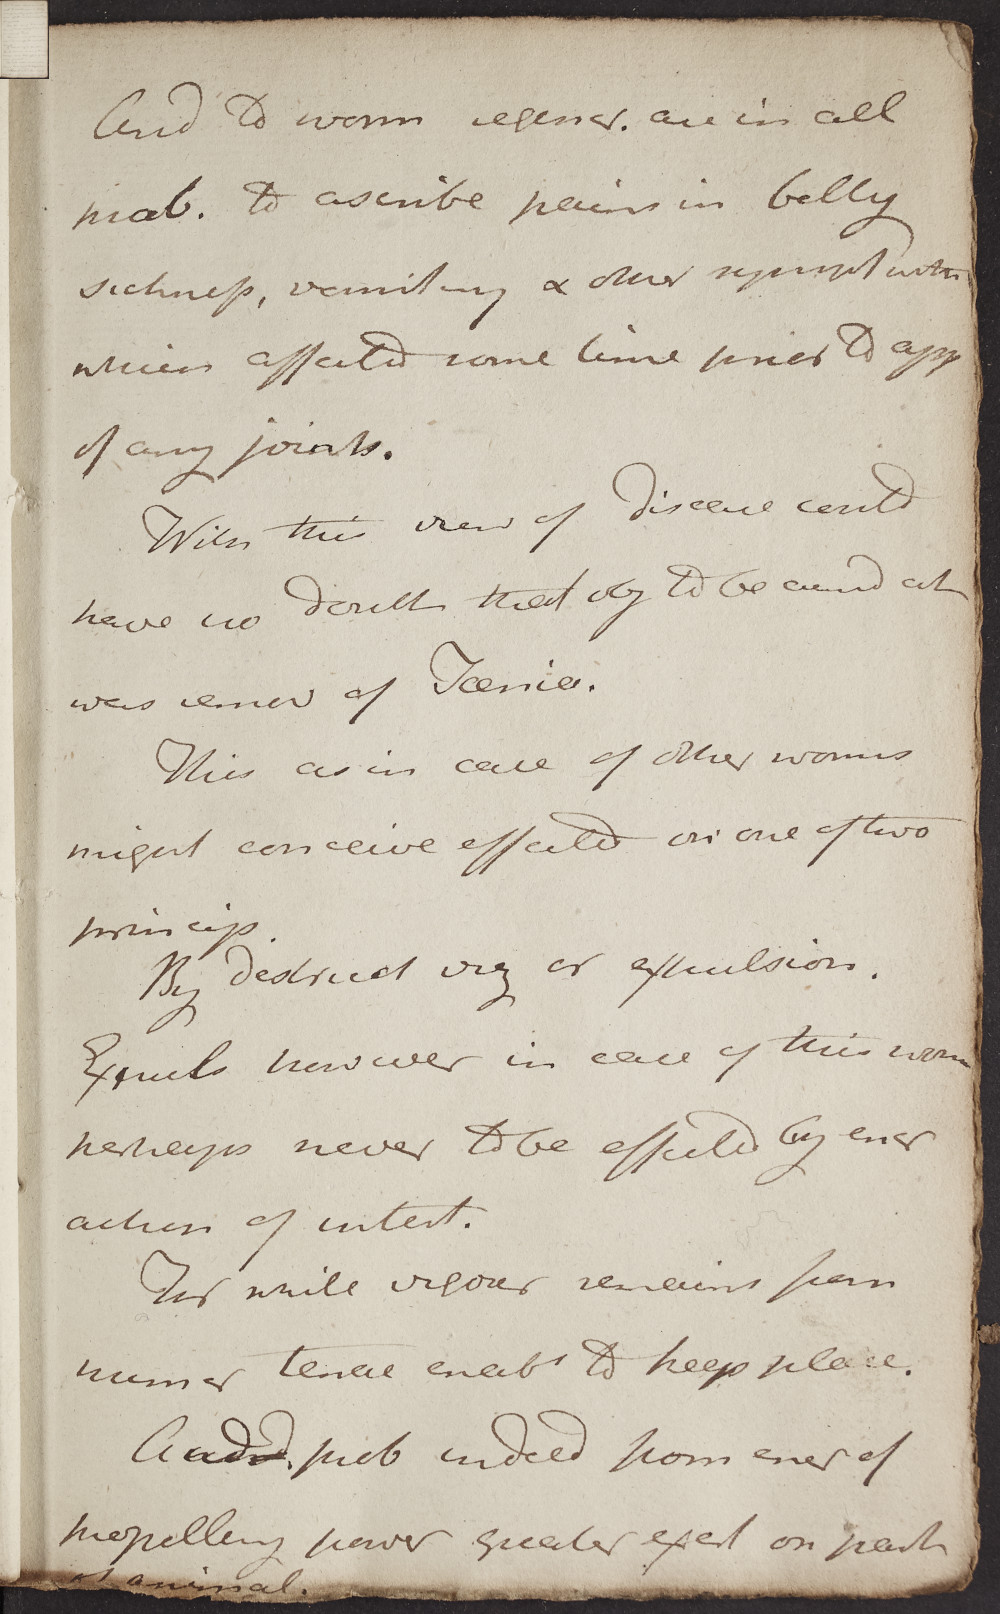 And to worm regener. are in all
prob. to ascribe pains in belly
sickness, vomiting & other sympt with
which affected some time prior to app
of any joints.
With this view of disease could
have no doubt that obj to be aimd at
was remov of Taenia.
This as in case of other worms
might conceive effected on one of two
princip.
By destruct viz or expulsion.
Expuls however in case of this worm
perhaps never to be effected by ener
action of intest.
For while vigour remains from
numer tenac enabl to keep place.
And prob indeed from ener of
propelling power greater exert on part
of animal.